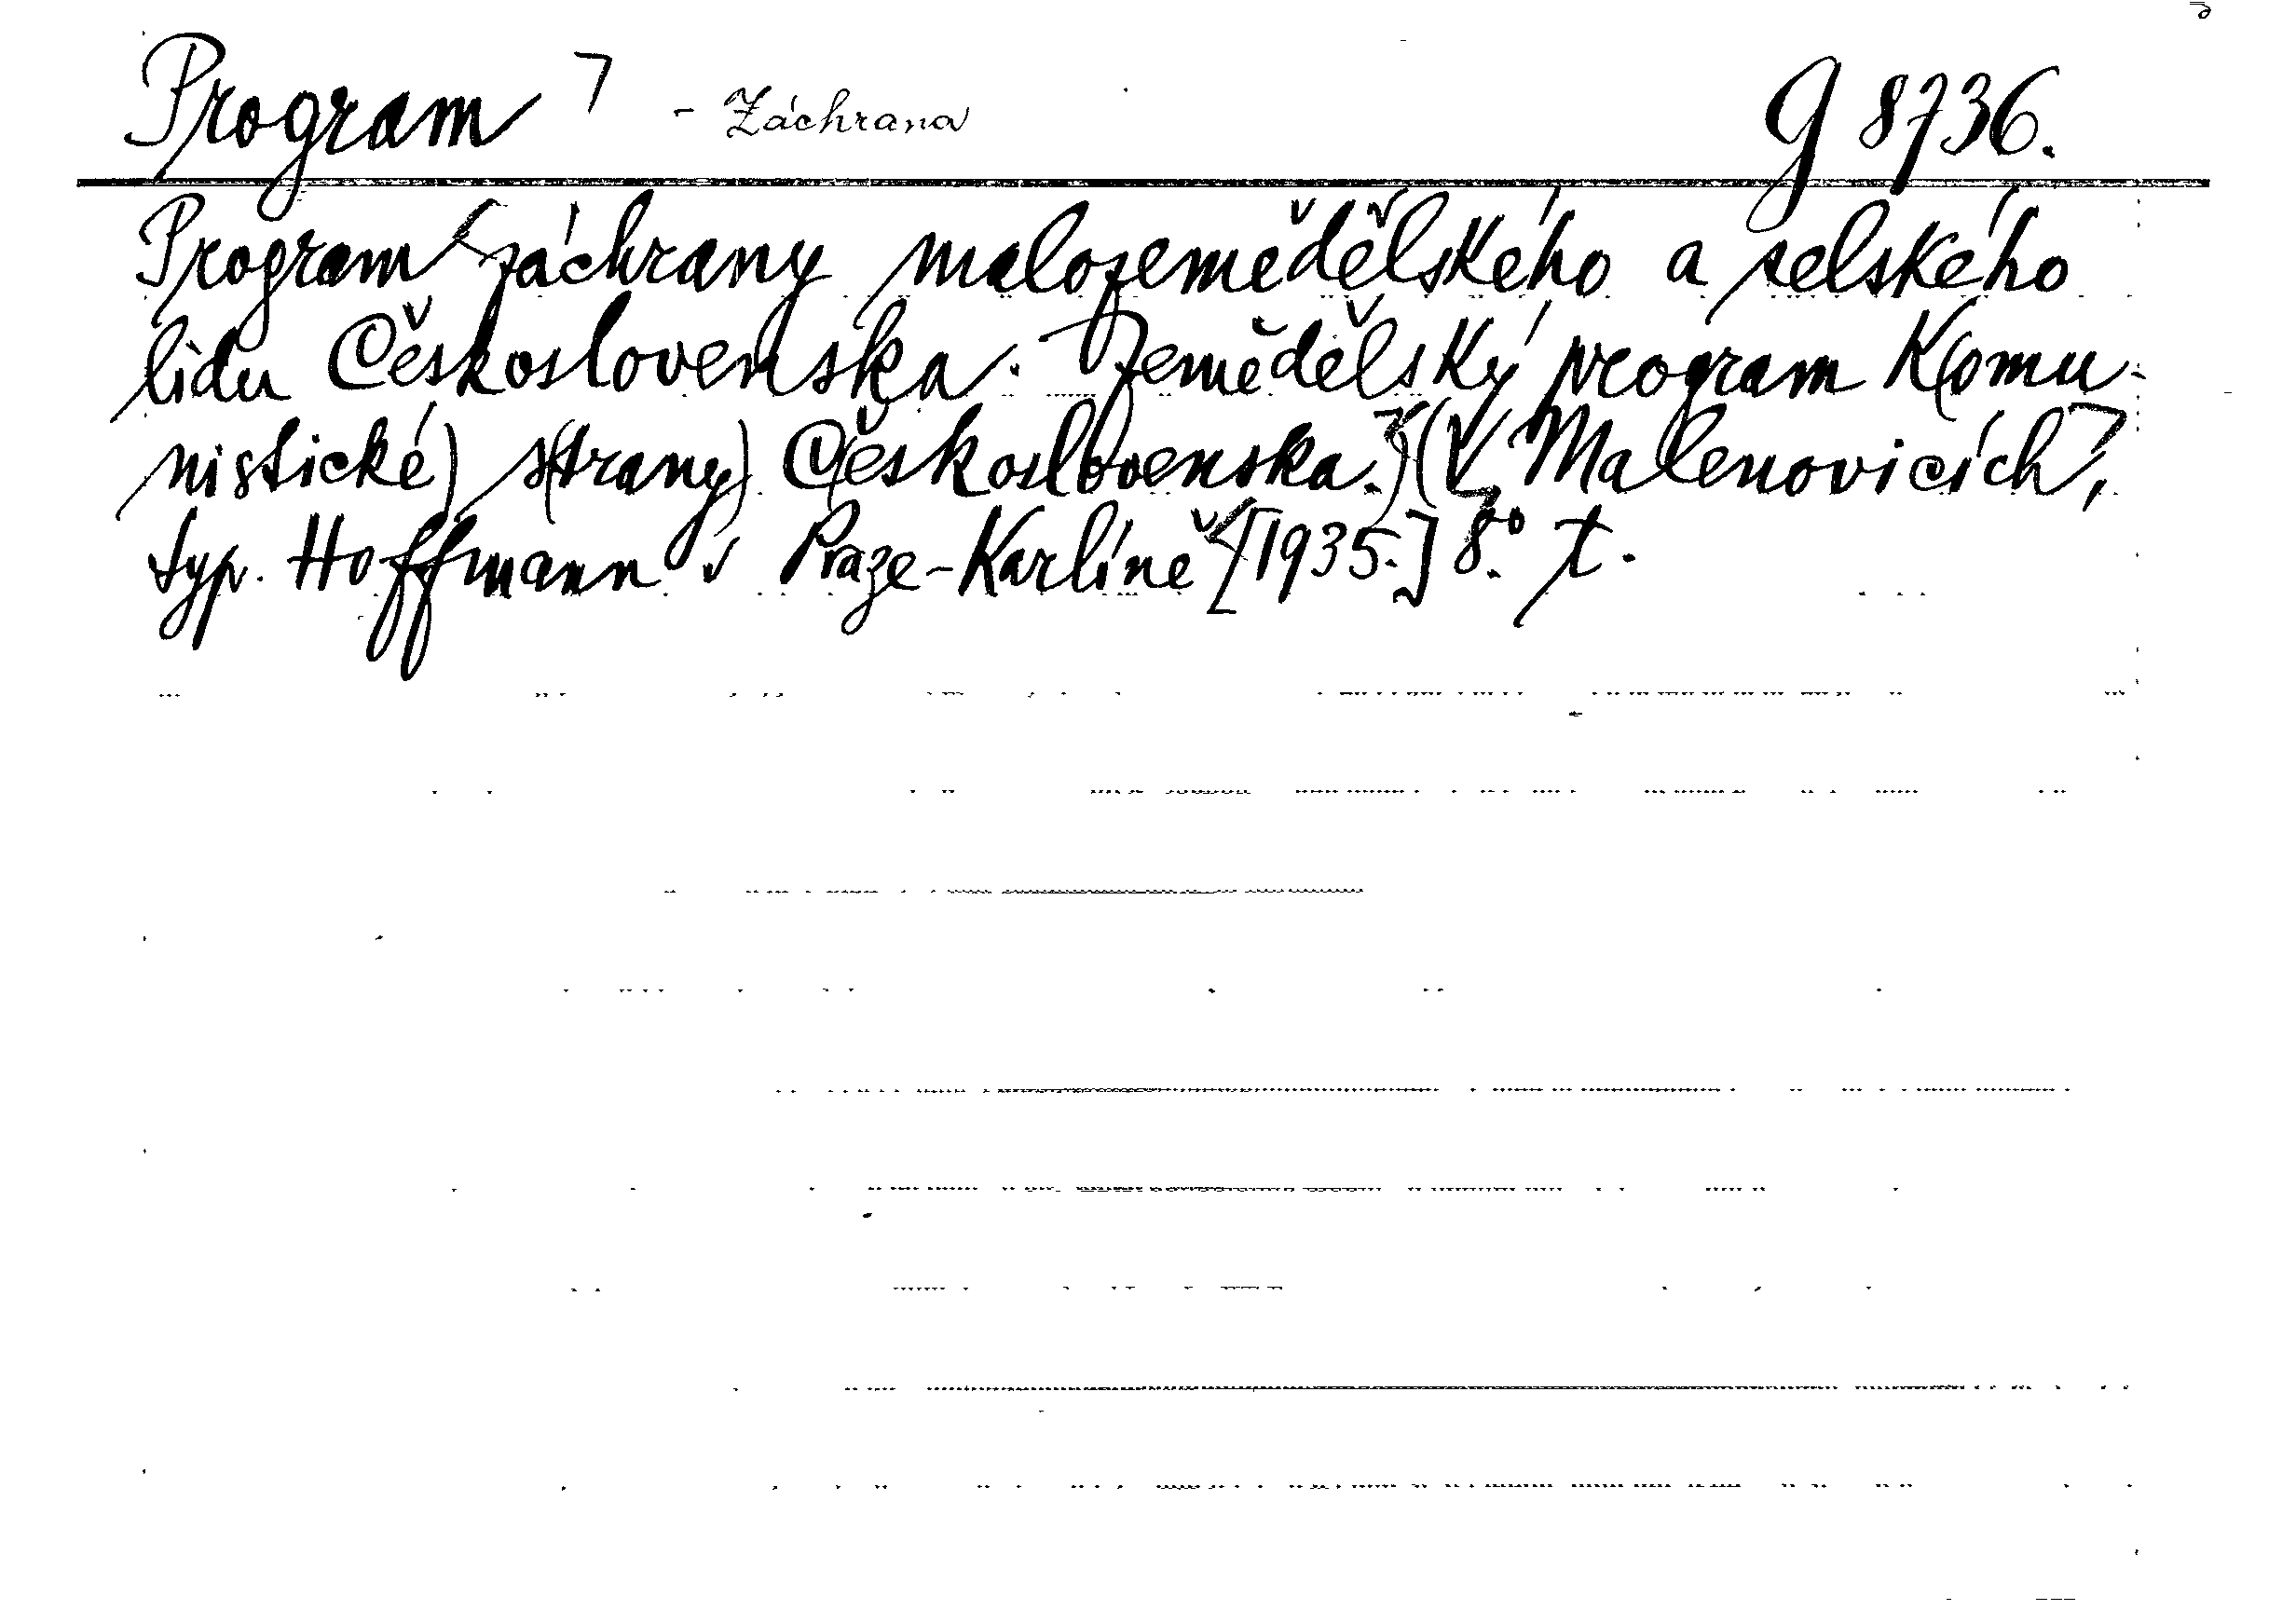 Program - Záchrana g 8736.
Program záchrany malozemědělského a selského
lidu Československa. Zemědělský program K(omu-
nistické) s(trany) Č(eskoslovenska.) (V Malenovicích,
typ. Hoffmann v Praze-Karlíně [1935.] 8.° t.